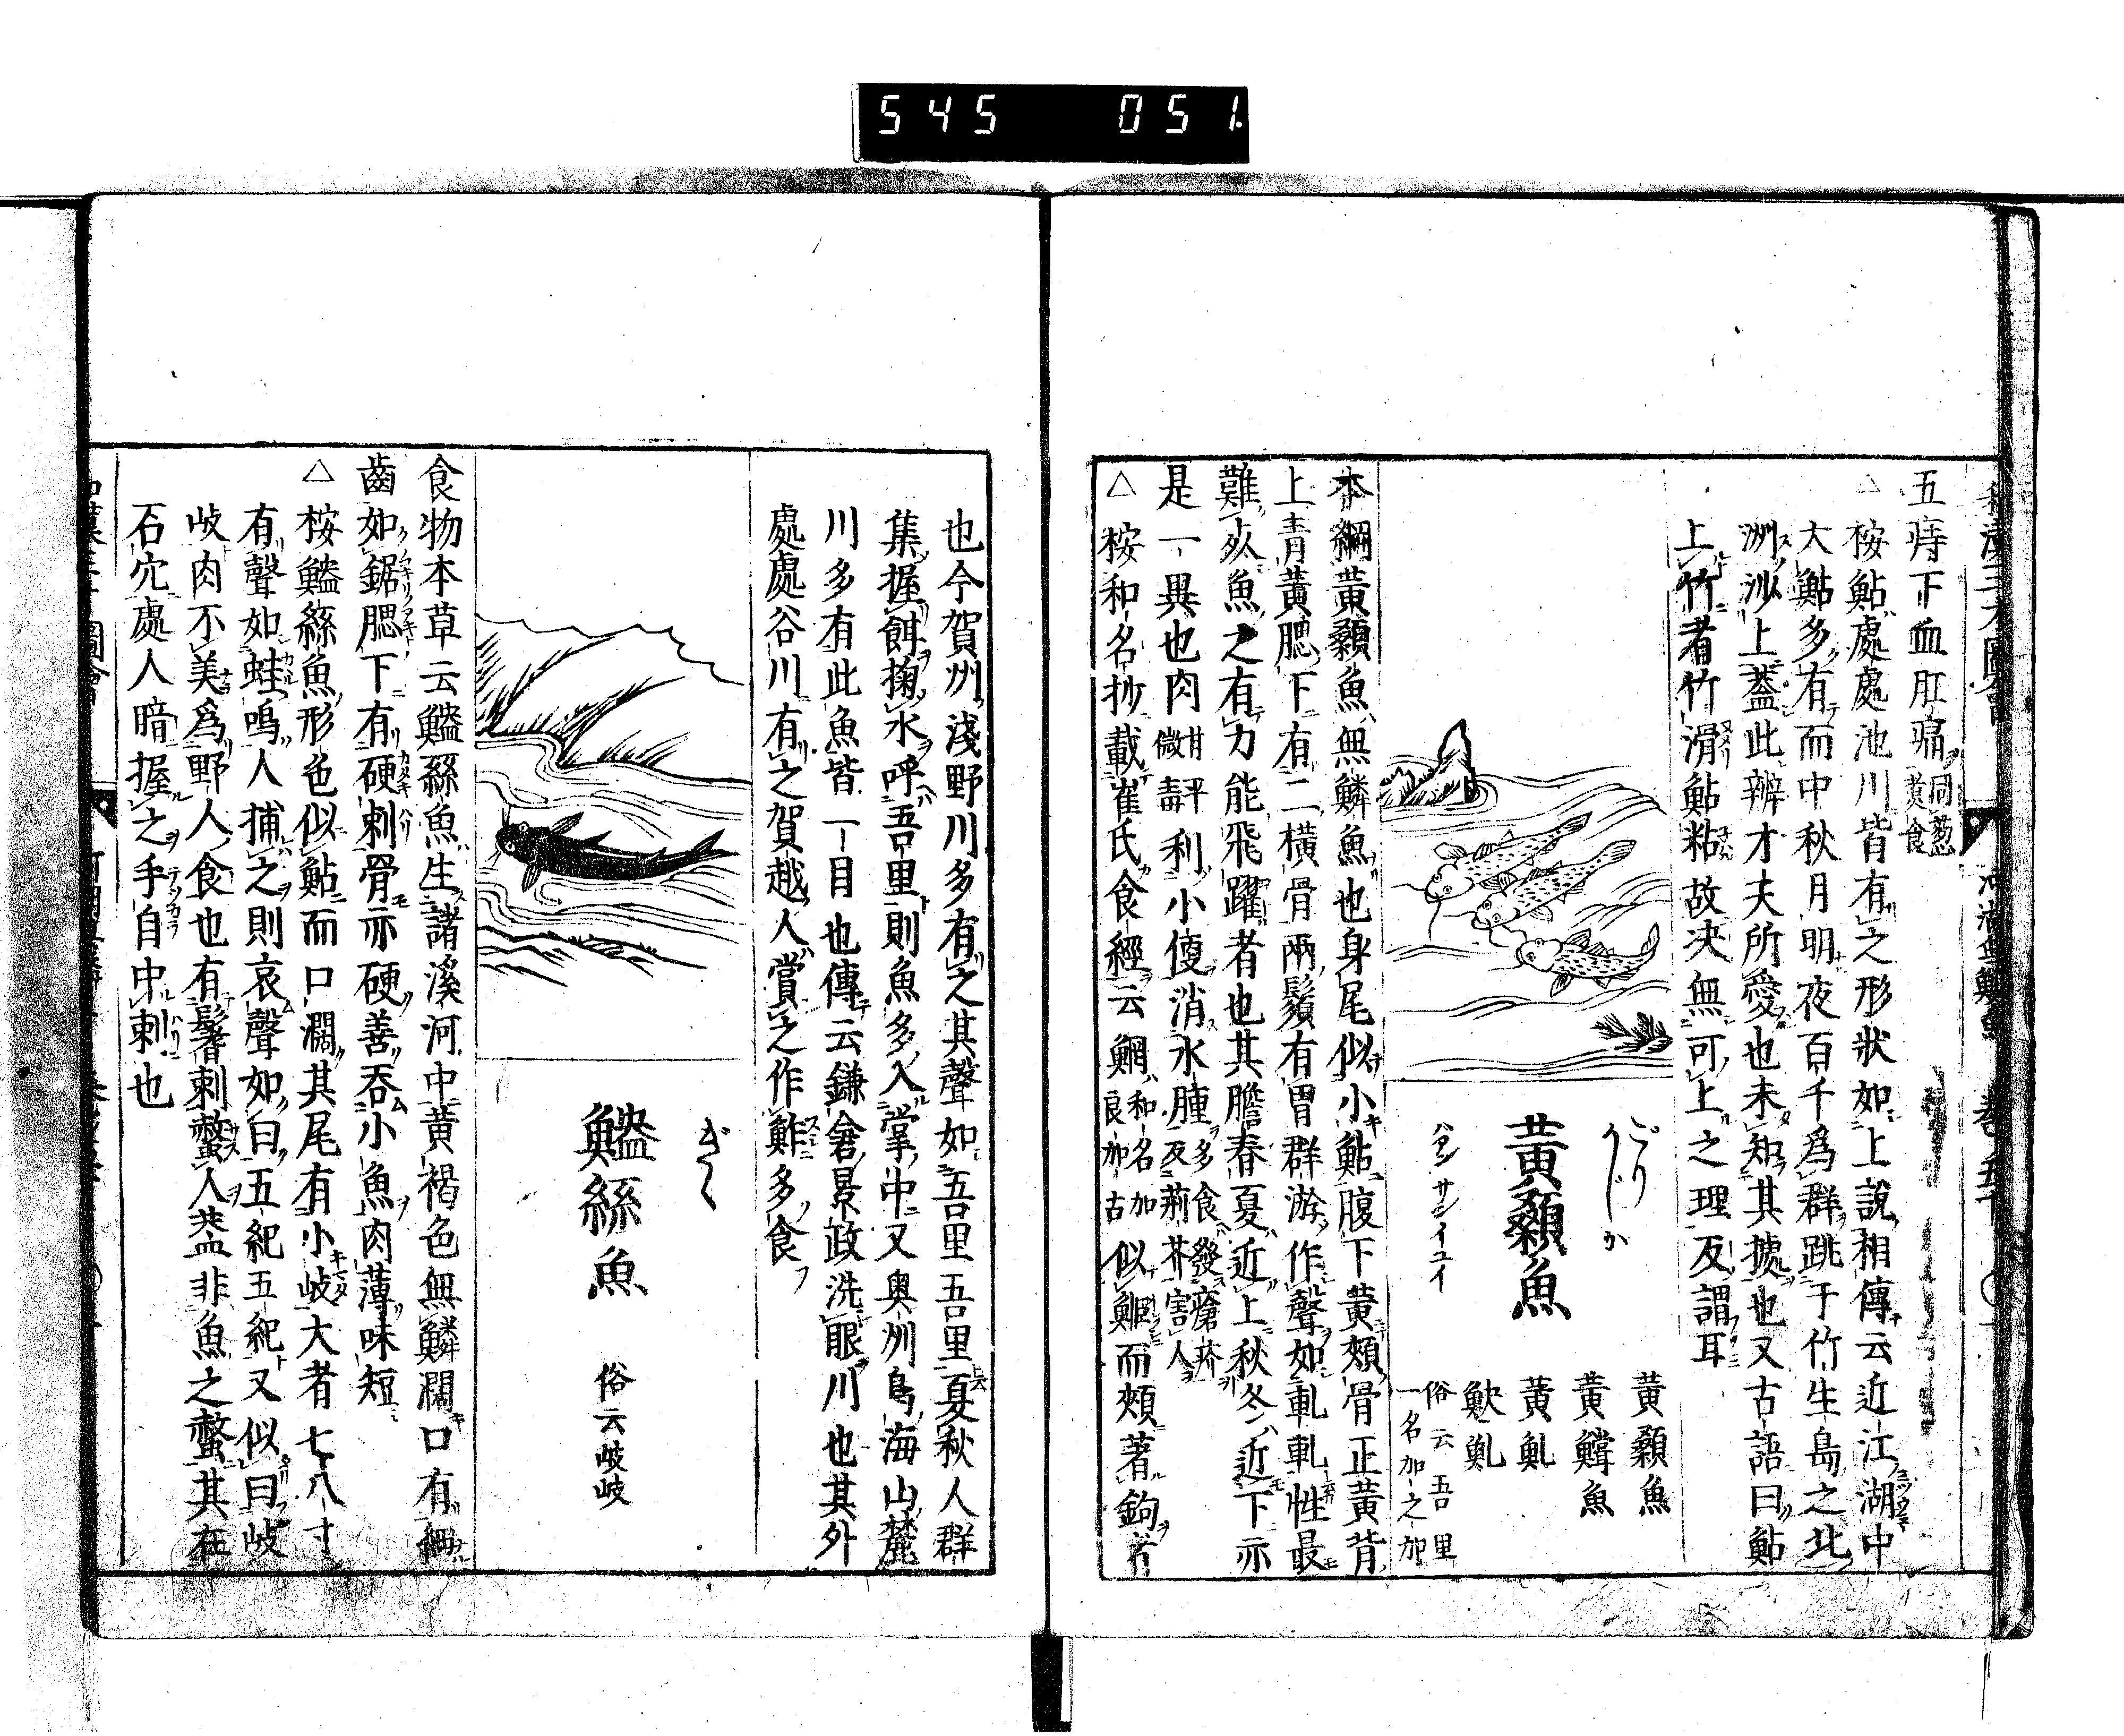 545 051
五痔下血肛痛 同葱煑食
△ 桉鮎處處池川皆有之形狀如上說相傳云近江湖中
大鮎多有而中秋月明夜百千爲群跳于竹生島之北
洲沙上蓋此辨才夫所愛也未知其㨿也又古語曰鮎
上竹者竹滑鮎粘故决無可上之理反謂耳
ごり
うじか
黃顙魚
ハアン サシイユイ
黃顙魚
黃鱨魚
黃䰲
䱀䰲
俗云吾里
一名加之加
本綱黃顙魚無鱗魚也身尾似小鮎腹下黃頰骨正黃背
上青黃腮下有二橫骨兩鬚有胃群游作聲如軋軋性最
難死魚之有力能飛躍者也其膽春夏近上秋冬近下亦
是一異也肉 甘平微毒 利小便消水腫 多食發瘡疥反荊芥害人
△ 桉和名抄載崔氏食經云䱟 和名加良加古 似䱌而頰著鉤者
也今賀洲淺野川多有之其聲如吾里吾里夏秋人群
集握餌掬水呼吾里則魚多入掌中又奥洲鳥海山麓
川多有此魚皆一目也傳云鎌倉景政洗眼川也其外
處處谷川有之賀越人賞之作鮓多食
ぎぎ
鱁絲魚
俗云岐岐
食物本草云鱁絲魚生諸溪河中黃褐色無鱗濶口有細
齒如鋸腮下有硬刺骨亦硬善吞小魚肉薄味短
△ 桉鱁絲魚形色似鮎而口濶其尾有小岐大者七八寸
有聲如蛙鳴人捕之則哀聲如曰五紀五紀又似曰岐
岐肉不美爲野人食也有鬐刺螫人葢非魚之螫其在
石穴處人暗握之手自中刺也